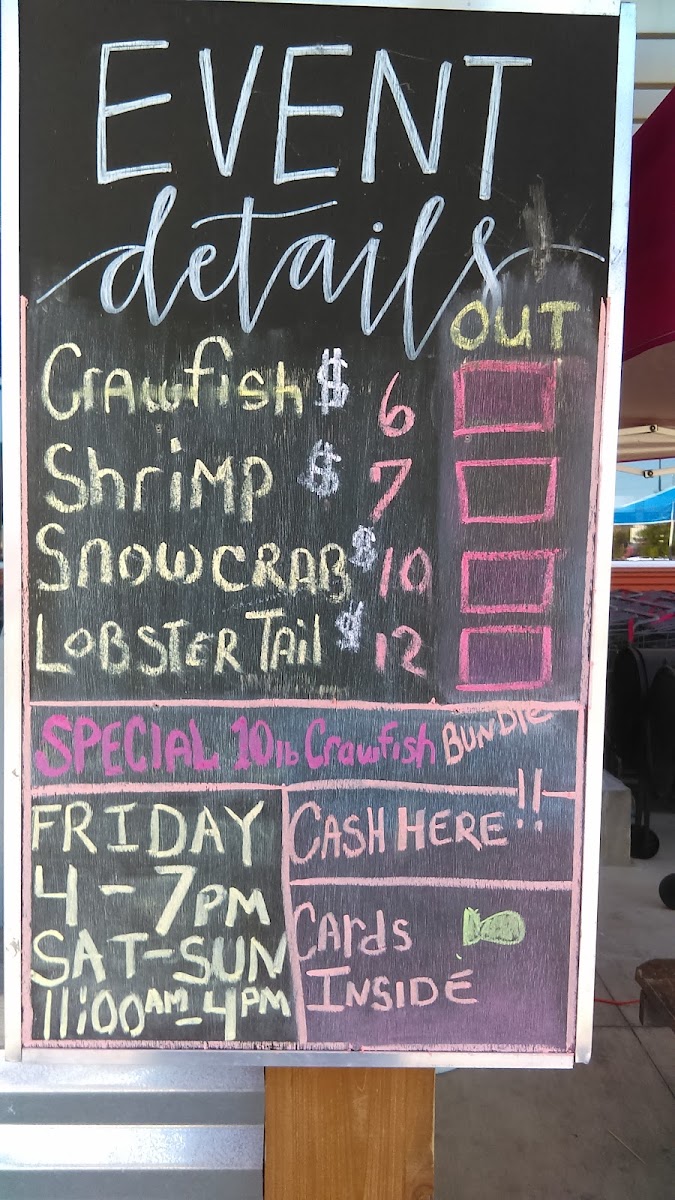 EVENT
details
OUT
Crawfish $ 6
Shrimp $ 7
SNOWCRAB $ 10
LOBSTER TAil $ 12
SPECIAL 10lb Crawfish BUNDle
FRIDAY
4 - 7PM
SAT-SUN
11:00AM-4PM
CASH HERE!!
CArds
INSIDE